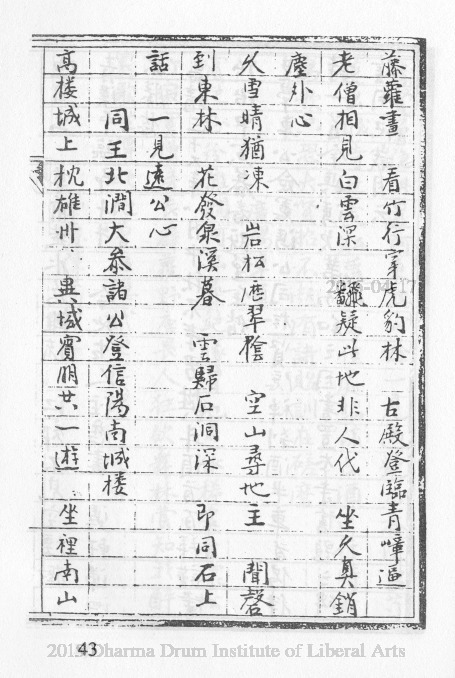 藤蘿晝　看竹行穿虎豹林　古殿登臨青嶂逼
老僧相見白雲深　飜疑此地非人代　坐久真銷
塵外心
久雪晴猶凍　岩松灑翠陰　空山尋地主　聞磬
到東林　花發泉溪暮　雲歸石洞深　即同石上
話　一見遠公心
同王北澗大叅諸公登信陽南城樓
高樓城上枕雄州　異城賓朋共一遊　坐裡南山
43
2019 Dharma Drum Institute of Liberal Arts